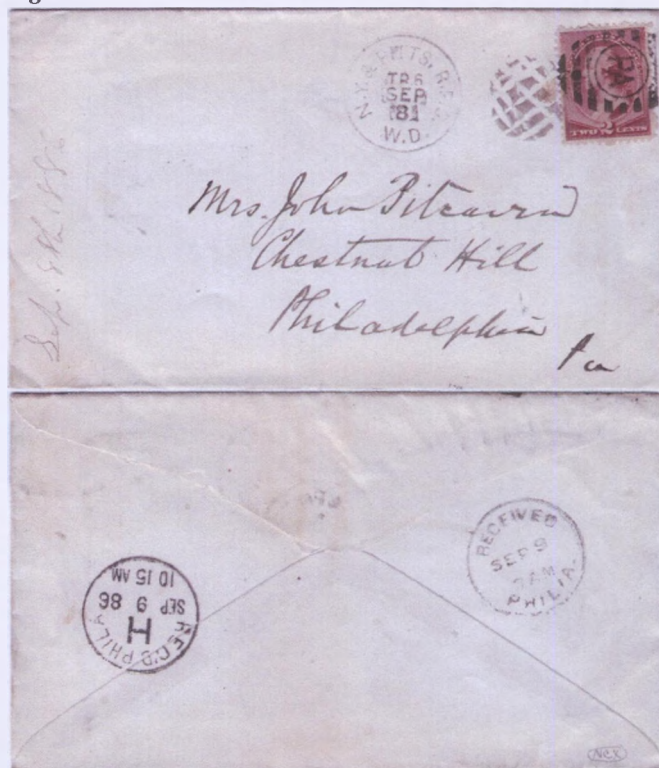 N.Y. & PITTS. R.P.O.
TR 6
SEP
8
W.D.
TWO 2 CENTS
Mrs. John Pitcairn
Chestnut Hill
Philadelphia
Pa
Sep. 8th 188
RECEIVED
SEP 9
7 AM
PHILA.
REC'D PHILA
H
SEP 9 86
10 15 AM